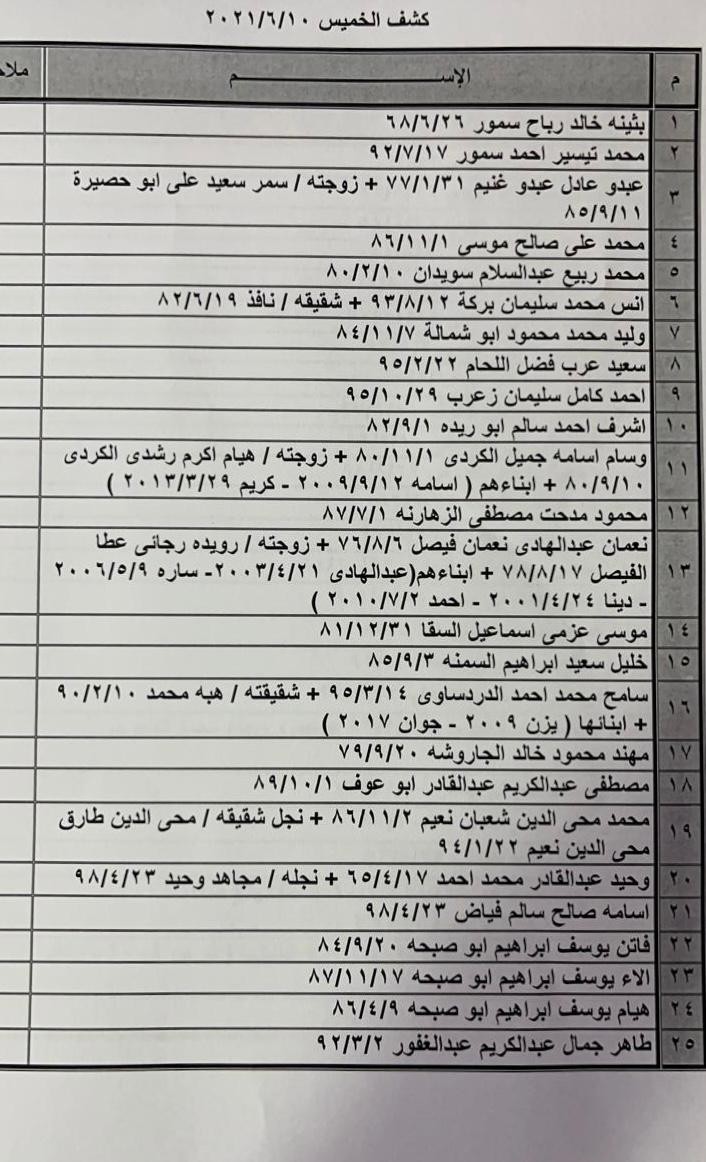 كشف الخميس ٢٠٢١/٦/١٠
م الإســـــــم ملاح
١ بثينه خالد رباح سمور ٦٨/٦/٢٦
٢ محمد تيسير احمد سمور ٩٢/٧/١٧
٣ عبدو عادل عبدو غنيم ٧٧/١/٣١ + زوجته / سمر سعيد على ابو حصيرة
٨٥/٩/١١
٤ محمد على صالح موسى ٨٦/١١/١
٥ محمد ربيع عبدالسلام سويدان ٨٠/٢/١٠
٦ انس محمد سليمان بركة ٩٣/٨/١٢ + شقيقه / نافذ ٨٢/٦/١٩
٧ وليد محمد محمود ابو شمالة ٨٤/١١/٧
٨ سعيد عرب فضل اللحام ٩٥/٢/٢٢
٩ احمد كامل سليمان زعرب ٩٥/١٠/٢٩
١٠ اشرف احمد سالم ابو ريده ٨٢/٩/١
١١ وسام اسامه جميل الكردى ٨٠/١١/١ + زوجته / هيام اكرم رشدى الكردى
٨٠/٩/١٠ + ابناءهم ( اسامه ٢٠٠٩/٩/١٢ - كريم ٢٠١٣/٣/٢٩ )
١٢ محمود مدحت مصطفى الزهارنه ٨٧/٧/١
١٣ نعمان عبدالهادى نعمان فيصل ٧٦/٨/٦ + زوجته / رويده رجائى عطا
الفيصل ٧٨/٨/١٧ + ابناءهم(عبدالهادى ٢٠٠٣/٤/٢١- ساره ٢٠٠٦/٥/٩
- دينا ٢٠٠١/٤/٢٤ - احمد ٢٠١٠/٧/٢ )
١٤ موسى عزمى اسماعيل السقا ٨١/١٢/٣١
١٥ خليل سعيد ابراهيم السمنه ٨٥/٩/٣
١٦ سامح محمد احمد الدردساوى ٩٥/٣/١٤ + شقيقته / هبه محمد ٩٠/٢/١٠
+ ابنائها ( يزن ٢٠٠٩ - جوان ٢٠١٧ )
١٧ مهند محمود خالد الجاروشه ٧٩/٩/٢٠
١٨ مصطفى عبدالكريم عبدالقادر ابو عوف ٨٩/١٠/١
١٩ محمد محى الدين شعبان نعيم ٨٦/١١/٢ + نجل شقيقه / محى الدين طارق
محى الدين نعيم ٩٤/١/٢٢
٢٠ وحيد عبدالقادر محمد احمد ٦٥/٤/١٧ + نجله / مجاهد وحيد ٩٨/٤/٢٣
٢١ اسامه صالح سالم فياض ٩٨/٤/٢٣
٢٢ فاتن يوسف ابراهيم ابو صبحه ٨٤/٩/٢٠
٢٣ الاء يوسف ابراهيم ابو صبحه ٨٧/١١/١٧
٢٤ هيام يوسف ابراهيم ابو صبحه ٨٦/٤/٩
٢٥ طاهر جمال عبدالكريم عبدالغفور ٩٢/٣/٢